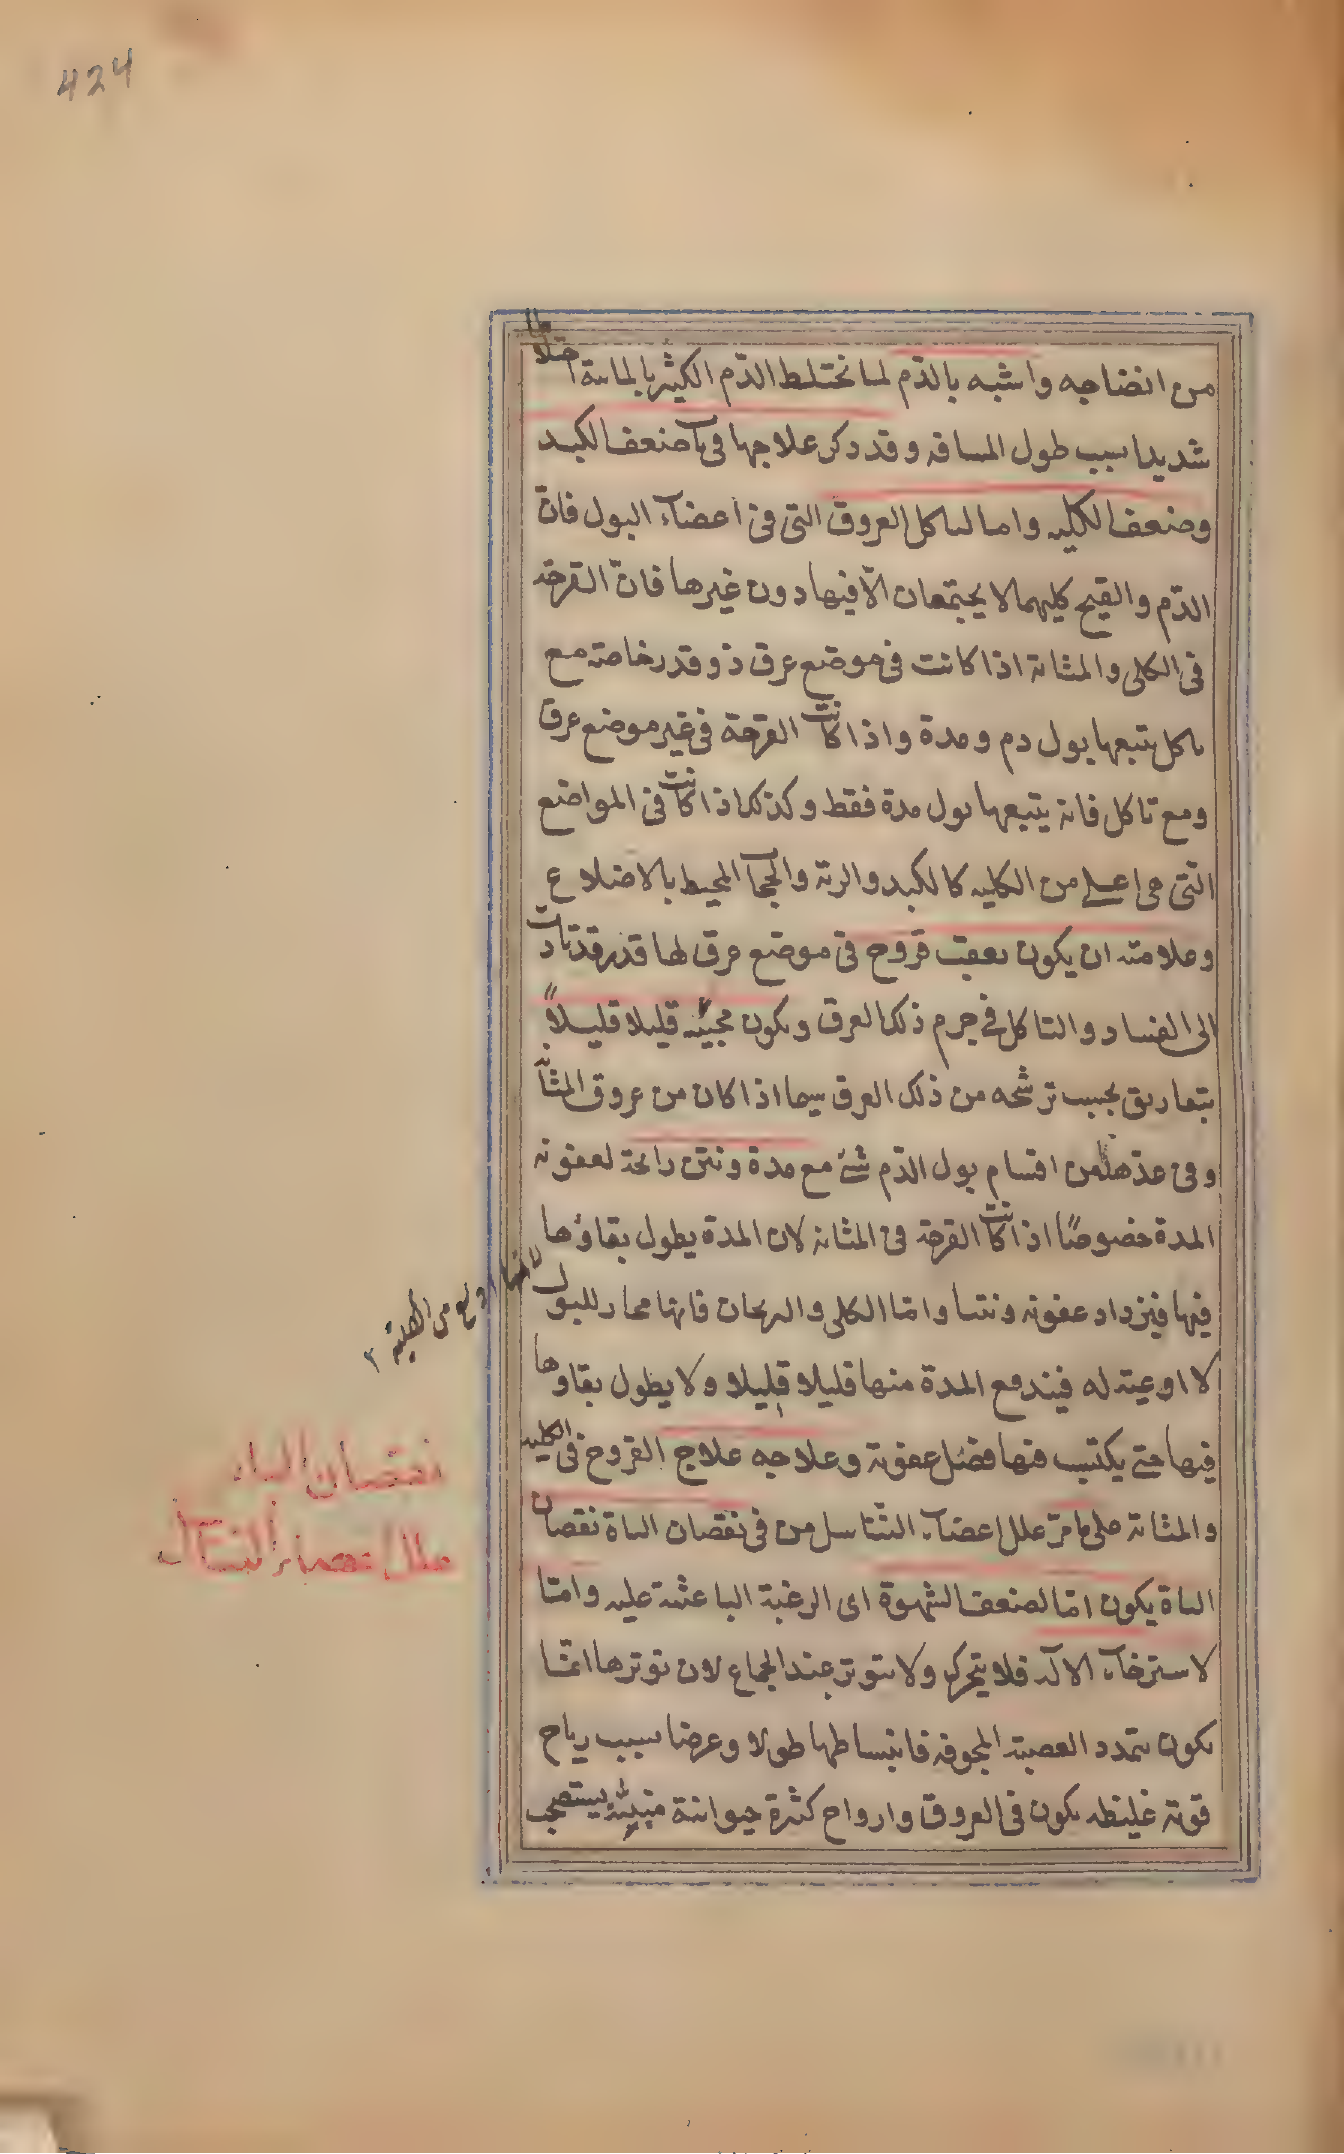 424
من انضاجه واشبه بالدّم لما يختلط الدّم الكثير بالمائية اختلاطا
شديدا بسبب طول المسافه وقد ذكر علاجها فى باب ضعف الكبد
وضعف الكليه واما لتاكل العروق التى فى اعضاء البول فانّ
الدّم والقيح كليهما لا يجتمعان الّا فيها دون غيرها فانّ القرحة
فى الكلى والمثانة اذا كانت فى موضع عرق ذو قدر خاصة مع
تاكل يتبعها بول دم ومدة واذا كانت القرحة فى غير موضع عرق
ومع تاكل فانه يتبعها بول مدة فقط وكذلك اذا كانت فى المواضع
التى هى اعلى من الكليه كالكبد والرية والحجاب المحيط بالاضلاع
وعلامته ان يكون بعقب قروح فى موضع عرق لها قدر قد تادت
الى الفساد والتاكل فى جرم ذلك العرق ويكون مجيئه قليلا قليلاً
بتفاريق بحسب ترشحه من ذلك العرق سيما اذا كان من عروق المثانة
وفى هذه من اقسام بول الدّم شئ مع مدة ونتن رائحة لعفونة
المدة خصوصًا اذا كانت القرحة فى المثانه لان المدة يطول بقاؤها
فيها فيزداد عفونه ونتنا وامّا الكلى والبربخان فانها مجار للبول
لا اوعية له فيندفع المدة منها قليلا قليلا ولا يطول بقاوها
فيها حتى يكتسب فيها فضل عفونة وعلاجه علاج القروح فى الكليه
والمثانة على ما مرّ علل اعضاء التّناسل من فى نقصان الباة نقصان
الباة يكون امّا لضعف الشهوة اى الرغبة الباعثة عليه وامّا
لاسترخاء الاله فلا يتحرك ولا يتوتر عند الجماع لان توترها انّما
يكون بتمدد العصبة المجوفه فانبساطها طولا وعرضا بسبب رياح
قوية غليظه يكون فى العروق وارواح كثيرة حيوانية منبثة يستصحب
نقصان الباه
علل اعضاء التناسل